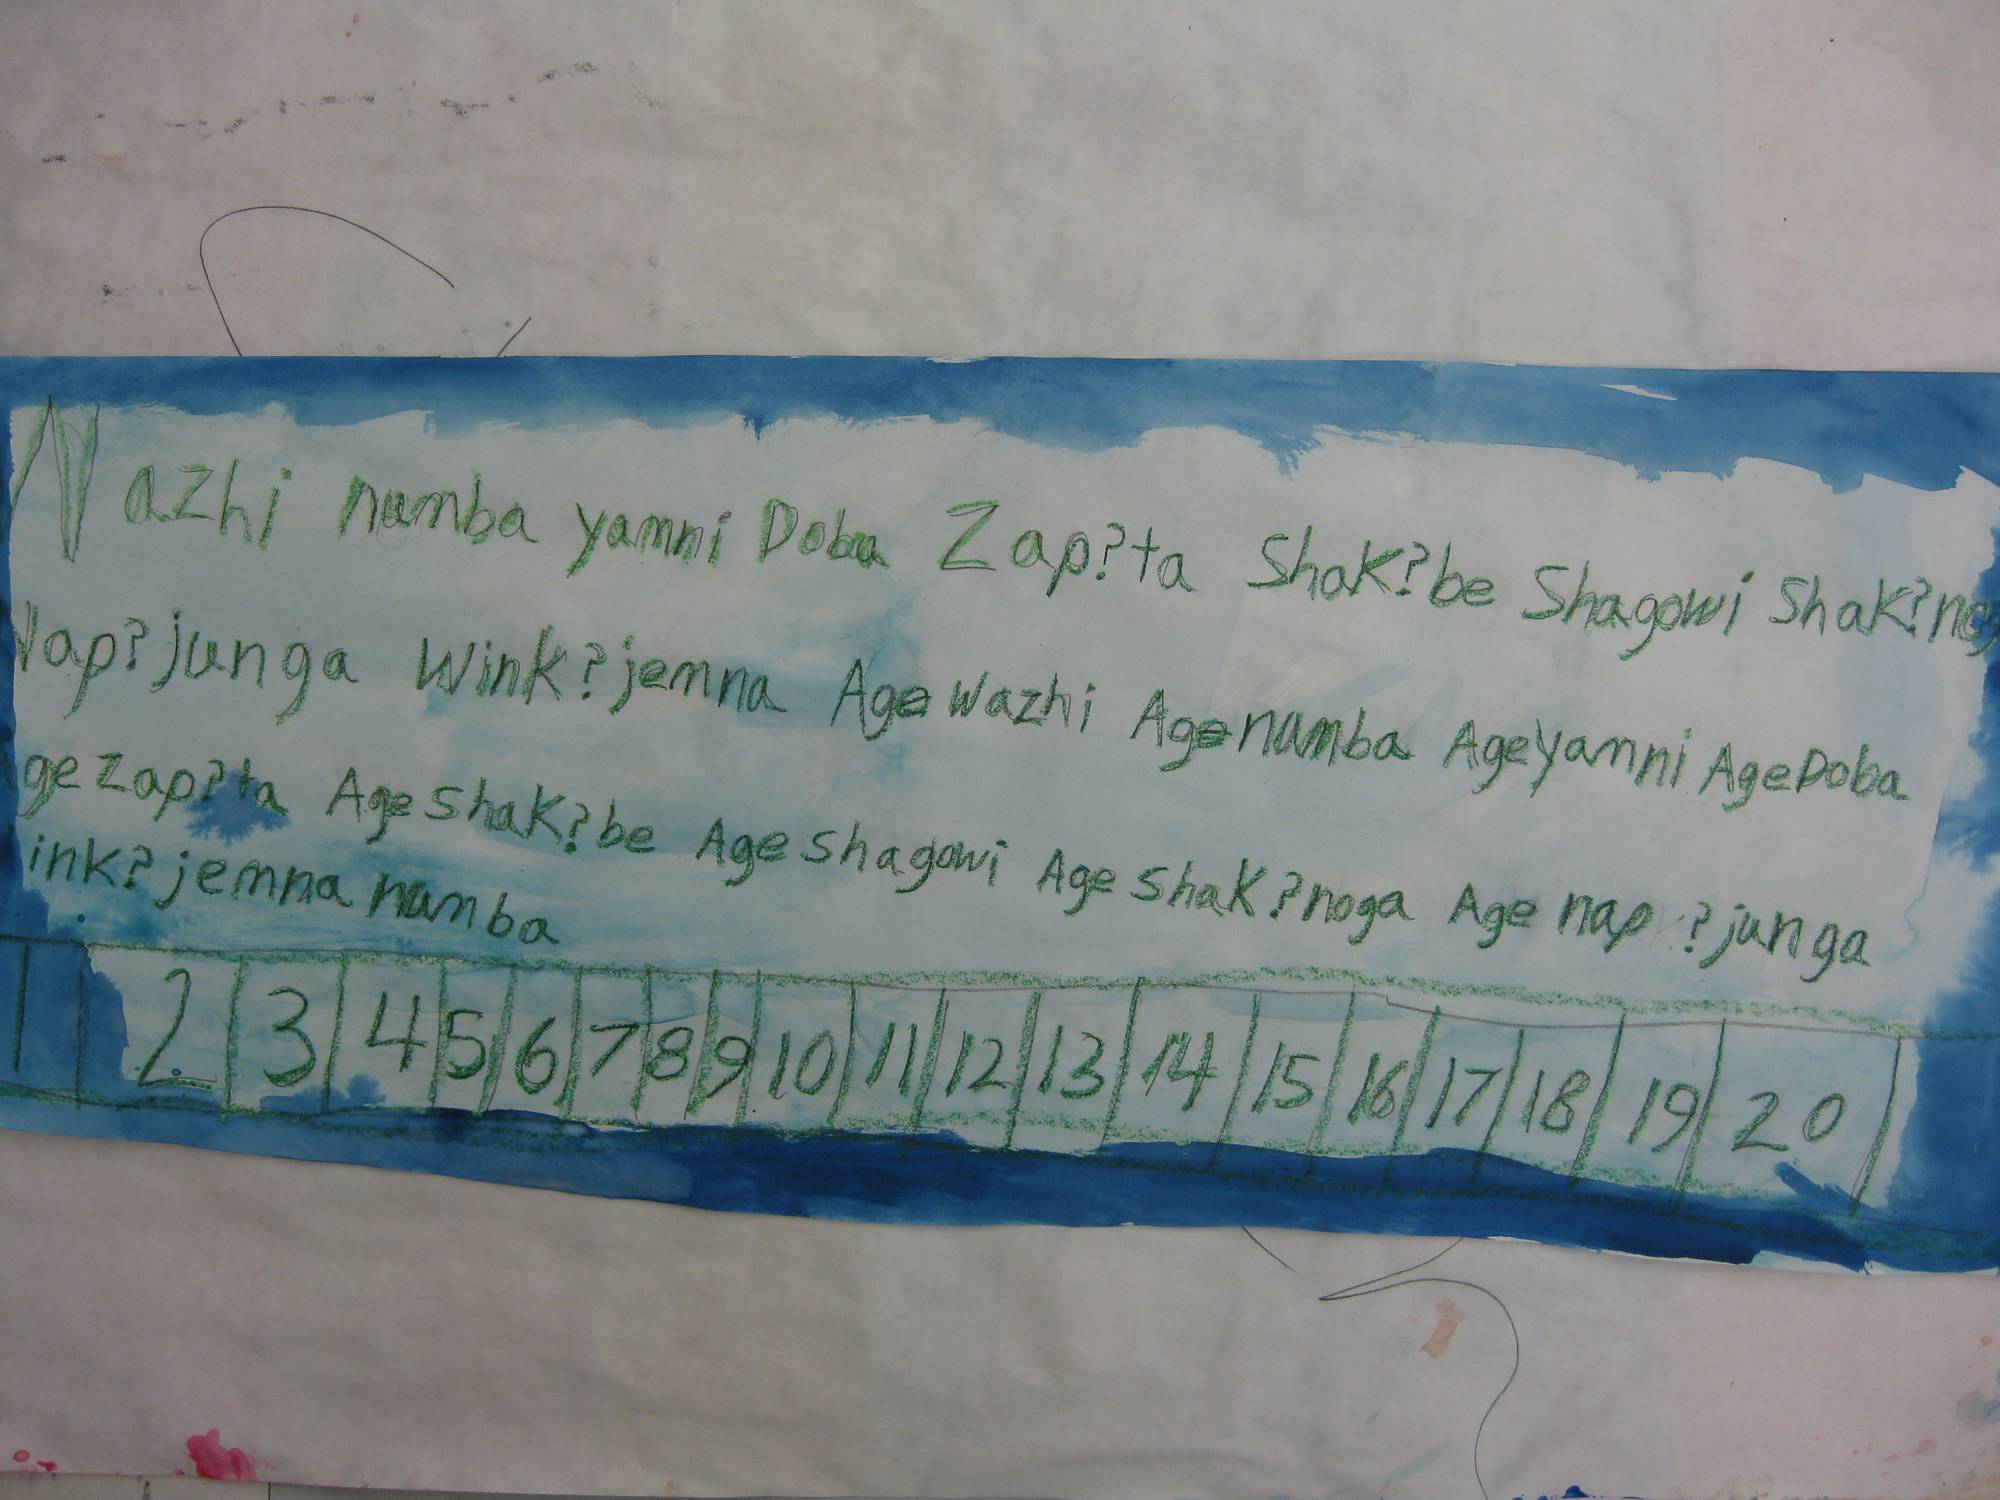 Wazhi numba yamni Doba Zap?ta Shak?be Shagowi Shak?nog
Nap?junga Wink?jemna Age Wazhi Age numba Age Yamni Age Doba
ge Zap?ta Age Shak?be Age shagowi Age Shak?noga Age nap?junga
ink?jemna numba
1 2 3 4 5 6 7 8 9 10 11 12 13 14 15 16 17 18 19 20